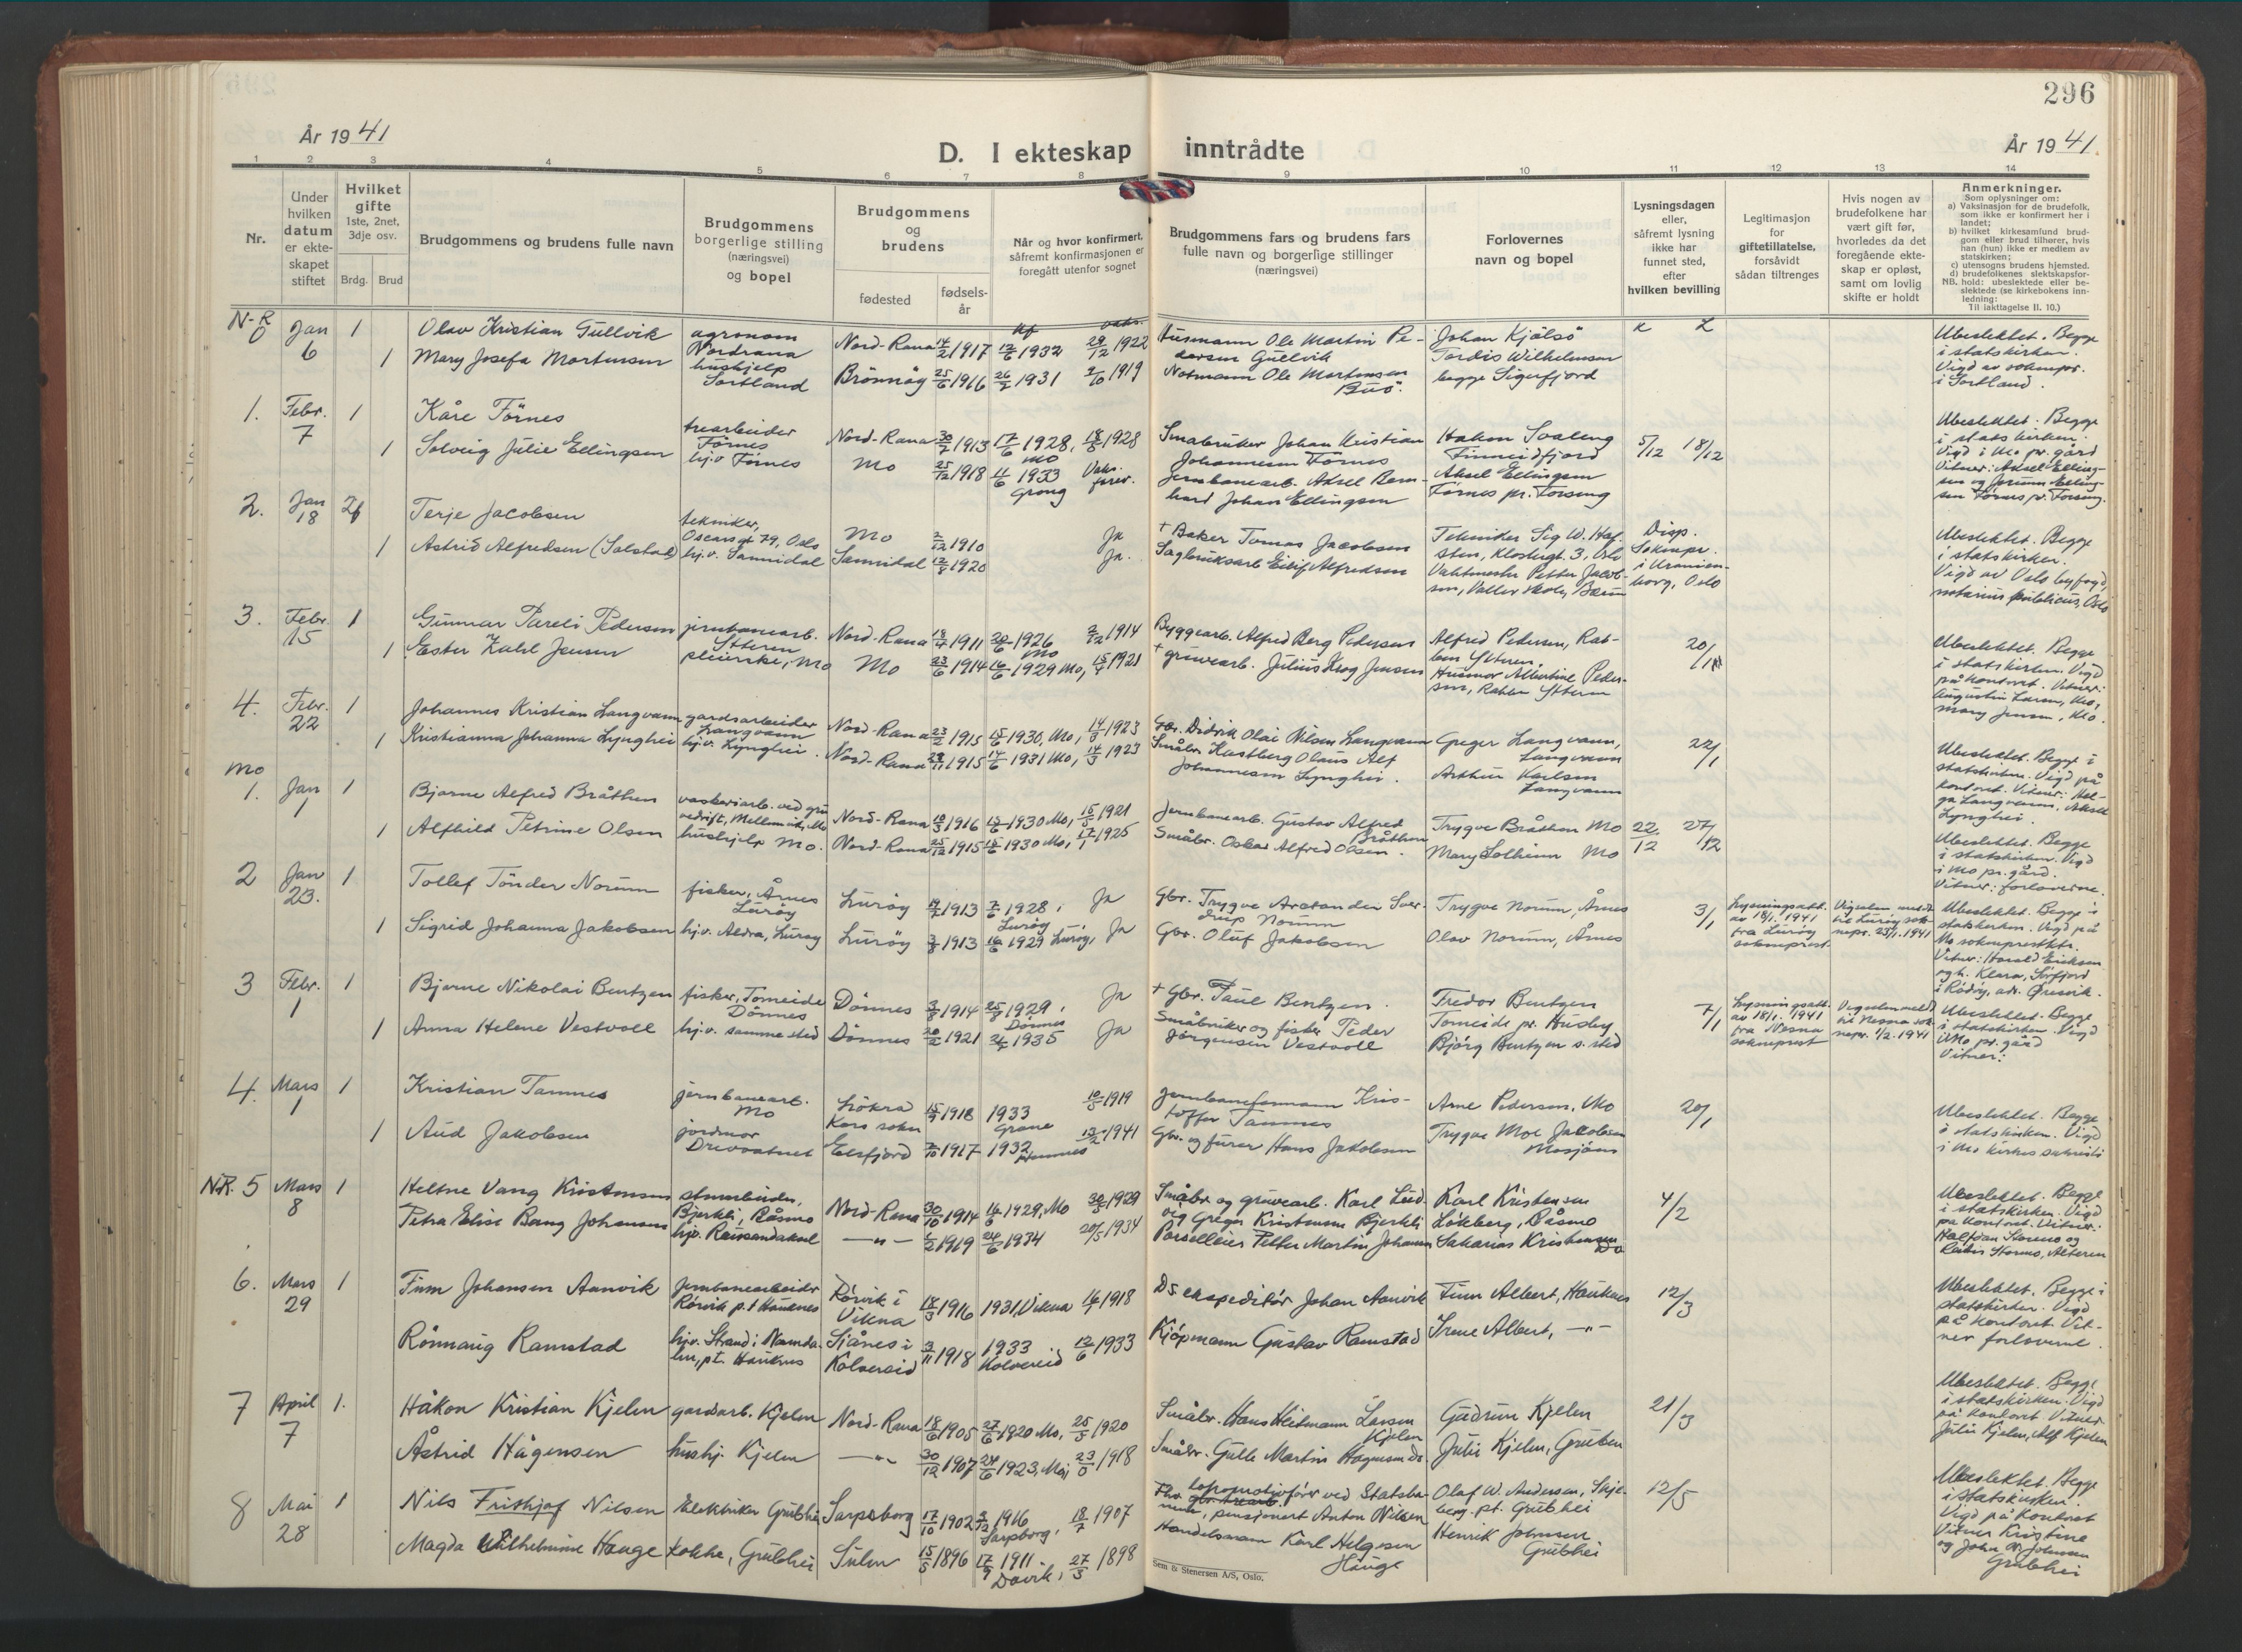 296
År 1941
D. I ekteskap inntrådte
År 1941.
1 2 3 4 5 6 7 8 9 10 11 12 13 14
Nr.
Under hvilken datum er ekteskapet stiftet
Hvilket gifte 1ste, 2net, 3dje osv.
Brdg. Brud
Brudgommens og brudens fulle navn
Brudgommens borgerlige stilling (næringsvei) og bopel
Brudgommens og brudens
fødested
fødselsår
Når og hvor konfirmert, såfremt konfirmasjonen er foregått utenfor sognet
Brudgommens fars og brudens fars fulle navn og borgerlige stillinger (næringsvei)
Forlovernes navn og bopel
Lysningsdagen eller, såfremt lysning ikke har funnet sted, efter hvilken bevilling
Legitimasjon for giftetillatelse, forsåvidt sådan tiltrenges
Hvis nogen av brudefolkene har vært gift før, hvorledes da det foregående ekteskap er opløst, samt om lovlig skifte er holdt
Anmerkninger.
Som oplysninger om:
a) Vaksinasjon for de brudefolk, som ikke er konfirmert her i landet;
b) hvilket kirkesamfund brudgom eller brud tilhører, hvis han (hun) ikke er medlem av statskirken;
c) utensogns brudens hjemsted.
d) brudefolkenes slektskapsforhold: ubeslektede eller beslektede (se kirkebokens innledning:
NB. Til iakttagelse II. 10.)
N-R
0 Jan 6 1 Olav Kristian Gullvik agronom Nordrana Nord-Rana 14/2 1917 12/6 1932 29/12 1922 Husmann Ole Martin Pedersen Gullvik Johan Kjølsø
1 Mary Josefa Mortensen hushjelp Sortland Brønnøy 25/6 1916 26/7 1931 2/10 1919 Notmann Ole Mortensen Buø. Tordis Wilhelmsen begge Sigerfjord
Ubeslektet. Begge i statskirken. Vigd av soknepr. i Sortland.
1. Febr. 7 1 Kåre Förnes trearbeider Förnes Nord-Rana 30/7 1913 17/6 1928, Mo 18/5 1928 Småbruker Johan Kristian Johannesen Förnes Hakon Svaleng Finneidfjord 5/12 18/12
1 Solveig Julie Ellingsen hj.v Förnes Mo 25/12 1918 11/6 1933 Grong Vaks. Jernbanearb. Aksel Bernhard Johan Ellingsen Aksel Ellingsen Förnes pr. Forseng
Ubeslektet. Begge i statskirken. Vigd i Mo pr. gård Vitner: Aksel Ellingsen og Jorunn Ellingsen Förnes pr. Forseng.
2. Jan 18 Terje Jacobsen tekniker, Oscarsgt 79, Oslo Mo 2/12 1910 Ja + Baker Tomas Jacobsen Tekniker Sig W. Hafsten, Klostergt. 3, Oslo Disp. Soknepr. i Uranienborg, Oslo
1 Astrid Alfredsen (Solstad) hj.v. Sannidal Sannidal 12/8 1920 Ja. Sagbruksarb Eilif Alfredsen Vaktmester Petter Jacobsen, Valler skole, Bærum
Ubeslektet. Begge i statskirken. Vigd av Oslo byfogd, notarius publicus, Oslo
3. Febr 15 1 Gunnar Pareli Pedersen jernbanearb. Ytteren Nord-Rana 18/4 1911 20/6 1926 Mo 2/12 1914 Byggearb. Alfred Berg Pedersen Alfred Pedersen, Ytteren, 20/1
1 Ester Jensen pleierske, Mo Mo 23/6 1914 16/6 1929 Mo, 15/4 1921 + gruvearb. Julius Krog Jensen Husmor Albertine Pedersen, Ytteren
Ubeslektet. Begge i statskirken. Vigd på kontoret. Vitner: Augustin Larsen, Mo, Mary Jensen, Mo.
4. Febr. 22 1 Johannes Kristian Langvann gardsarbeider Langvann Nord-Rana 23/2 1915 15/6 1930, Mo, 14/9 1923 Gbr. Didrik Olai Nilsen Langvann Greger Langvann, Langvann 22/1
1 Kristianna Johanna Lynghei hj.v. Lynghei. Nord-Rana 29/11 1915 14/6 1931 Mo, 14/9 1923 Småbr. Hastberg Olaus Alf Johannesen Lynghei. Arthur Karlsen Langvann
Ubeslektet. Begge i statskirken. Vigd på kontoret. Vitner: Helga Langvann, Aksel Lynghei.
Mo
1. Jan 1 1 Bjarne Alfred Bråthen vaskeriarb. ved gruvedrift, Mo Nord-Rana 10/3 1916 15/6 1930 Mo, 15/5 1921 Jernbanearb. Gustav Alfred Bråthen Trygve Bråthen Mo 22/12 27/12
1 Alfhild Petrine Olsen hushjelp Mo. Nord-Rana 25/12 1915 15/6 1930 Mo, 17/1 1925 Småbr. Oskar Alfred Olsen. Mary Solheim Mo
Ubeslektet. Begge i statskirken. Vigd i Mo pr. gård. Vitner: forloverne.
2 Jan 23. 1 Tollef Tönder Norum fisker, Årnes Luröy Luröy 1913 7/6 1928, Luröy Ja Gbr. Trygve Norum Trygve Norum, Årnes 3/1 Lysningsatt. av 18/1. 1941 fra Luröy sokneprest
1 Sigrid Johanna Jakobsen hj.v. Aldra, Luröy Luröy 3/8 1913 16/6 1929 Luröy, Ja Gbr. Oluf Jakobsen Olav Norum, Årnes
Vigselen meldt til Luröy soknepr. 23/1. 1941
Ubeslektet. Begge i statskirken. Vigd på Mo sokneprestktr. Vitner: Harald Eriksen og h. Klara, Sörfjord i Rödöy, adr. Öresvik.
3 Febr. 1 1 Bjarne Nikolai Bentzen fisker, Tomeide Dönnes Dönnes 3/8 1914 25/8 1929, Dönnes Ja + Gbr. Paul Bentzen. Fredor Bentzen Tomeide pr. Husby 7/1 Lysningsatt. av 18/1. 1941 fra Nesna sokneprest
1 Anna Helene Vestvoll hj.v. samme sted Dönnes 20/2 1921 21/7 1935 Ja Småbruker og fisker Peder Jörgensen Vestvoll Björg Bentzen s. sted
Vigselen meldt til Nesna soknepr. 1/2. 1941
Ubeslektet. Begge i statskirken. Vigd i Mo pr. gård Vitner:
4. Mars 1 1 Kristian Tamnes jernbanearb. Mo Kors sokn 15/9 1918 1933 Grane 10/5 1919 Jernbaneformann Kristoffer Tamnes Arne Pedersen, Mo 20/1
1 Aud Jakobsen jordmor Drevvatnet Elsfjord 7/10 1917 1932 13/2 1941 Gbr. og fører Hans Jakobsen Trygve Moe Jakobsen Mosjöen
Ubeslektet. Begge i statskirken. Vigd i Mo kirkes sakristi
N.R. 5 Mars 8 1 Heltne Vang Kristensen Bjerkli, Råsmo Nord-Rana 30/10 1914 16/6 1929, Mo 30/5 1929 Småbr. og gruvearb. Karl Ludvig Greger Kristensen Bjerkli Karl Kristensen Lökberg, Råsmo 4/2
Petra Elise Bang Johansen hjv. —"— 1/2 1919 24/6 1934 20/5 1934 Parselleier Petter Martin Johansen Sakarias Kristensen Do
Ubeslektet. Begge i statskirken. Vigd på kontoret. Vitner: Halfdan Stormo og Stormo, Alteren
6. Mars 29 1 Finn Johansen Aunvik Jernbanearbeider Rörvik p.t Hauknes Rörvik i Vikna 18/3 1916 1931, Vikna 16/7 1918 DS ekspeditör Johan Aunvik Finn Albert, Hauknes 12/3
Rönnaug Ramstad hjv. Strand i Namdalen, pt. Hauknes Sjånes i Kolvereid 3/11 1918 1933 Kolvereid 12/6 1933 Kjöpmann Gustav Ramstad Irene Albert, —"—
Ubeslektet. Begge i statskirken. Vigd på kontoret Vitner forloverne.
7 April 7 1. Håkon Kristian Kjelen gardsarb. Kjelen Nord-Rana 18/6 1905 27/6 1920 Mo, 25/5 1920 Småbr. Hans Heitmann Larsen Kjelen Gudrun Kjelen 21/3
Åstrid Hågensen hushj. Kjelen —"— 30/12 1907 24/6 1923, Mo, 1918 Småbr. Gulle Martin Hagensen do Julie Kjelen, Gruben
Ubeslektet. Begge i statskirken. Vigd på kontoret Vitner Julie Kjelen, Alf Kjelen
8 Mai 28 1 Nils Frithjof Nilsen Elektriker Grubhei Sarpsborg 17/10 1902 3/12 1916 Sarpborg, 18/7 1907 lokomotivförer ved Statsbanene, pensjonert Anton Nilsen Olaf W. Andersen, Skjeberg, pt. Grubhei 12/5
Magda Wilhelmine Hauge kokke, Grubhei Sulen 15/5 1896 17/9 1911. Davik, 27/3 1898 Handelsmann Karl Helgesen Hauge Henrik Johnsen Grubhei
Ubeslektet. Begge i statskirken. Vigd på kontoret Vitner Kristine og John Johnsen Grubhei
Sem & Stenersen A/S, Oslo.